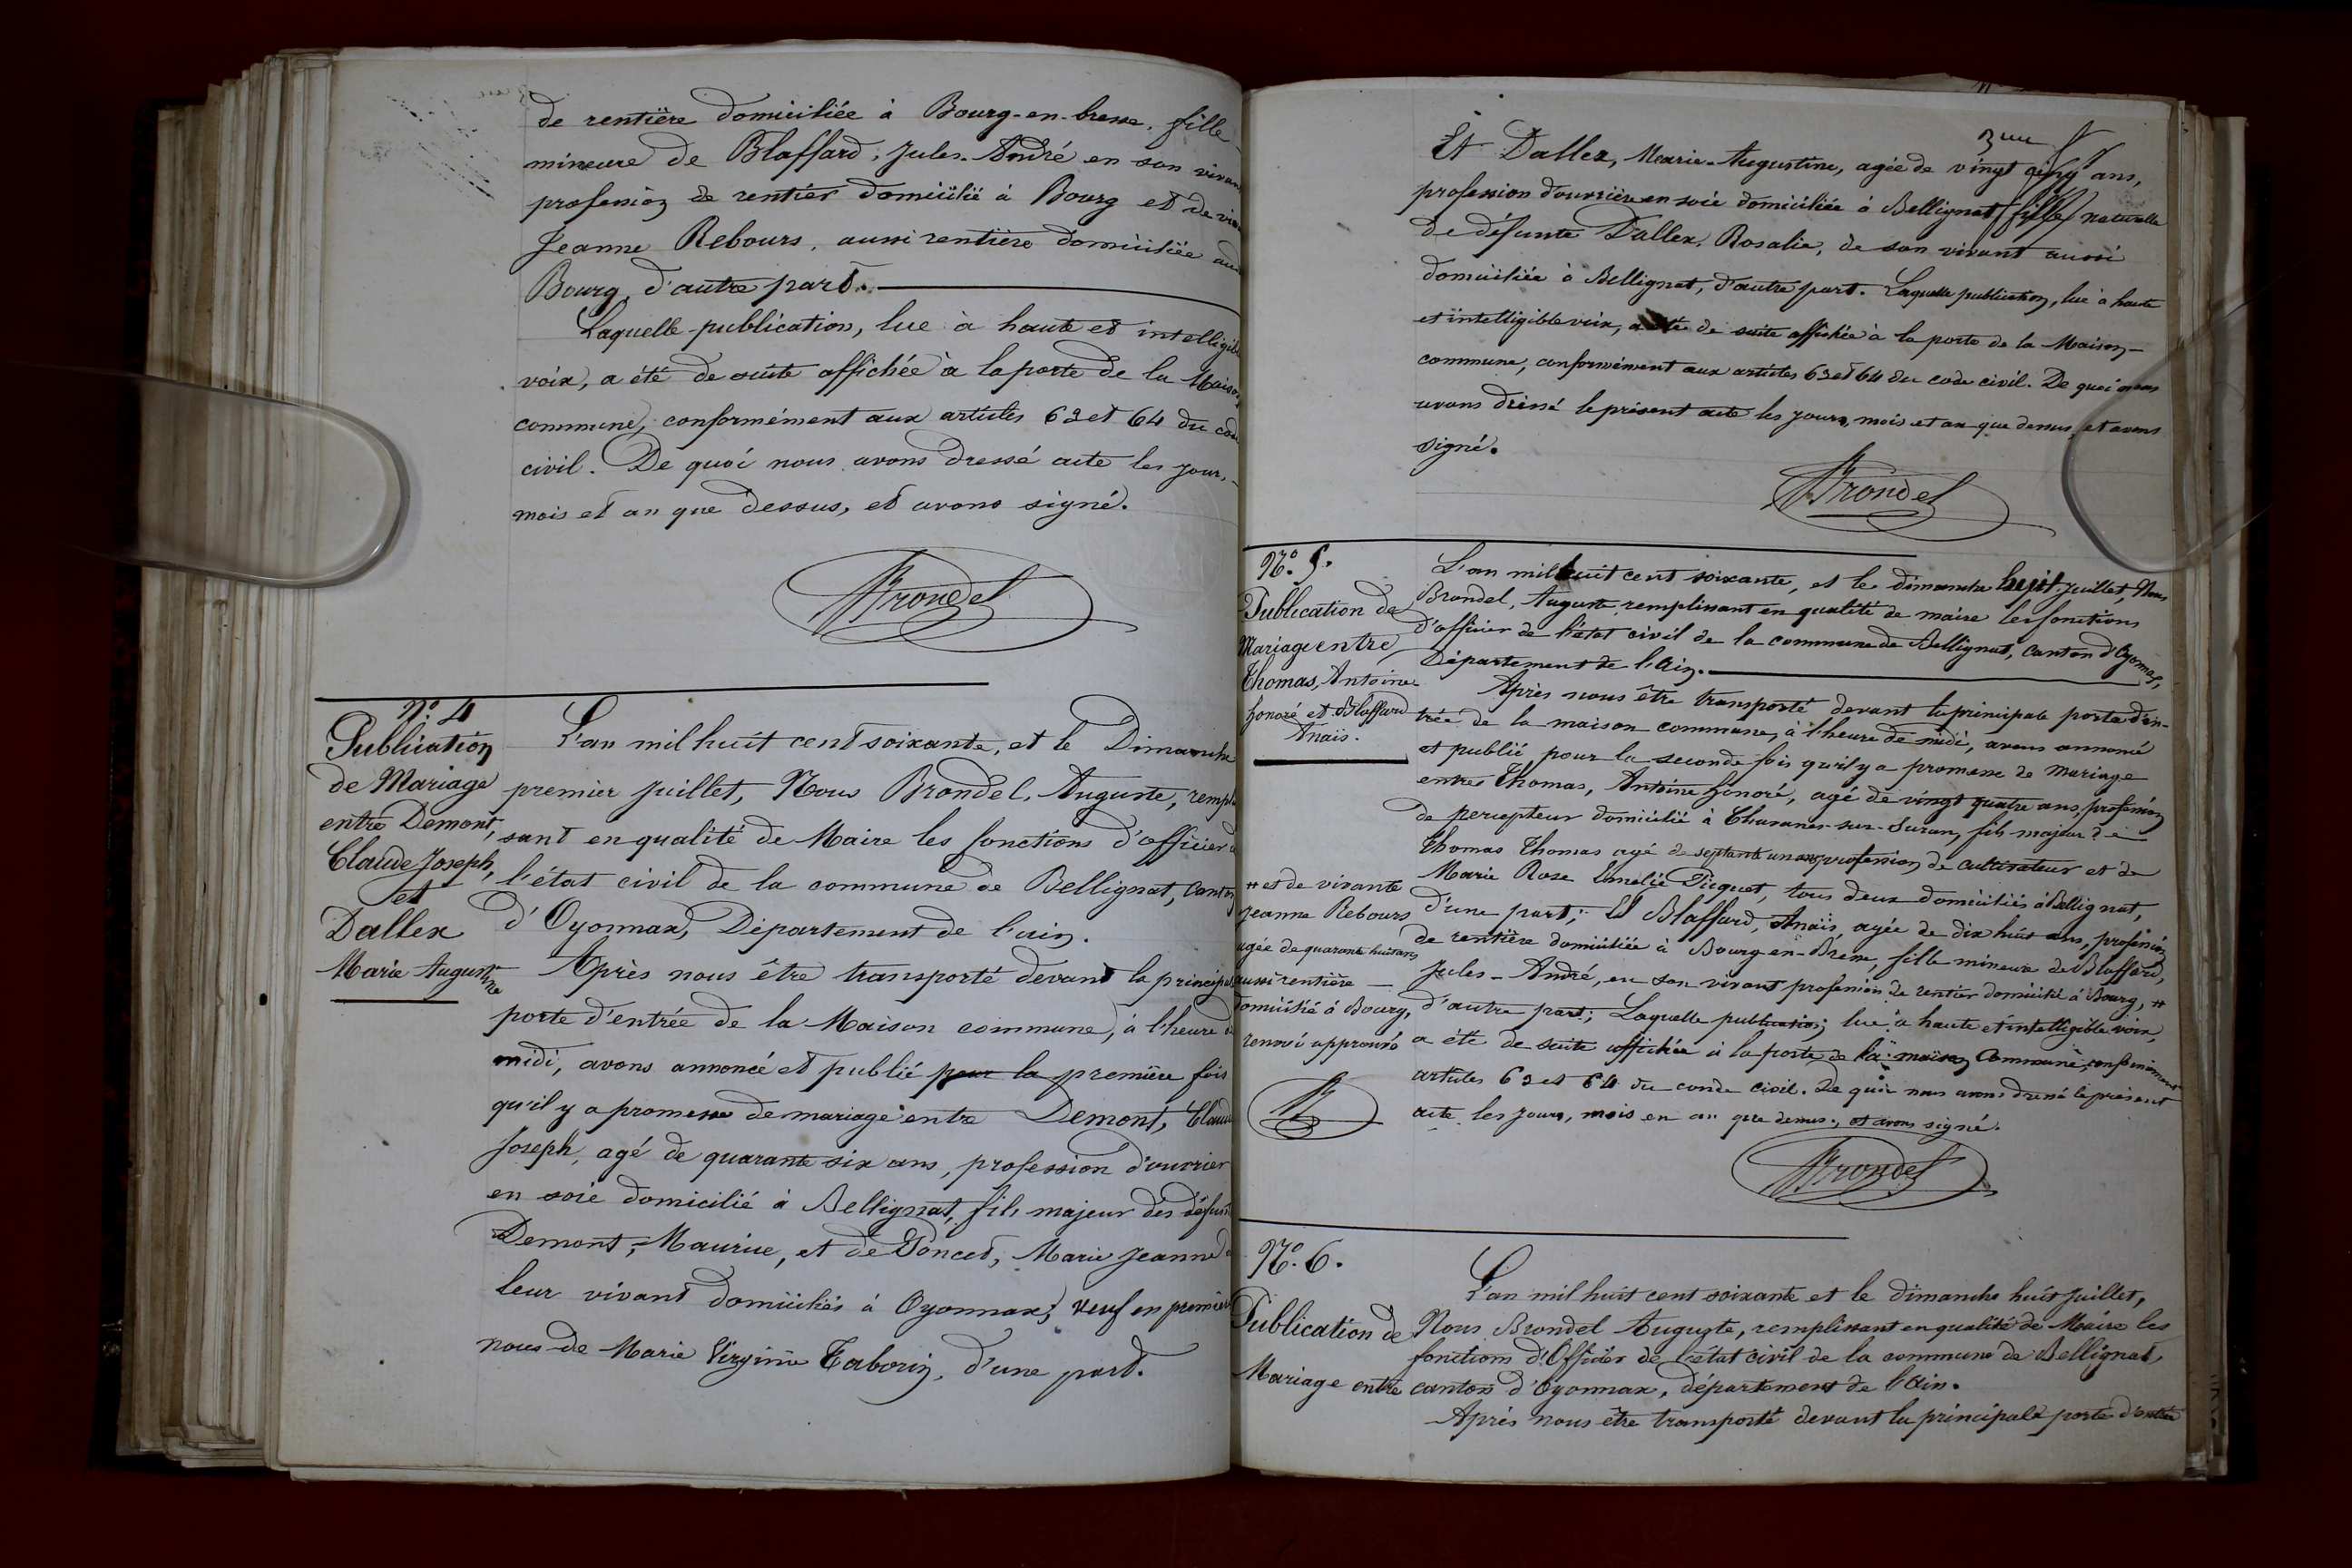 de rentière domiciliée à Bourg-en-bresse, fille
mineure de Blaffard, Jules-André en son vivant
profession de rentier domicilié à Bourg et de
Jeanne Rebours, aussi rentière domiciliée
Bourg, d'autre part.
Laquelle publication, lue à haute et intelligible
voix, a été de suite affichée à la porte de la Maison
commune, conformément aux articles 63 et 64 du code
civil. De quoi nous avons dressé acte les jour,
mois et an que dessus, et avons signé.
Brondel
N°. 4
Publication
de Mariage
entre Demont,
Claude Joseph,
et
Dallex
Marie Augustine
L'an mil huit cent soixante, et le Dimanche
premier Juillet, Nous Brondel, Auguste, rempl
sant en qualité de Maire les fonctions d'officier d
l'état civil de la commune de Bellignat, canton
d'Oyonnax, Département de l'ain.
Après nous être transporté devant la principal
porte d'entrée de la Maison commune, à l'heure d
midi, avons annoncé et publié pour la première fois
qu'il y a promesse de mariage entre Demont, Claude
Joseph, agé de quarante six ans, profession d'ouvrier
en soie domicilié à Bellignat, fils majeur des défunts
Demont, Maurice, et de Poncet, Marie Jeanne d
leur vivant domiciliés à Oyonnax, veuf en premières
noces de Marie Virginie Taborin, d'une part.
3me
Et Dallex, Marie-Augustine, agée de vingt cinq ans,
profession d'ouvrière en soie domiciliée à Bellignat, fille naturelle
de défunte Dallex, Rosalie, de son vivant aussi
domiciliée à Bellignat, d'autre part. Laquelle publication, lue à haute
et intelligible voix, a été de suite affichée à la porte de la Maison
commune, conformément aux articles 63 et 64 du code civil. De quoi nous
avons dressé le présent acte les jours, mois et an que dessus, et avons
signé.
Brondel
N°. 5.
Publication de
Mariage entre
Thomas, Antoine
honoré et Blaffard
Anaïs.
L'an mil huit cent soixante, et le dimanche huit Juillet, Nous
Brondel, Auguste remplissant en qualité de maire les fonctions
d'officier de l'état civil de la commune de Bellignat, canton d'Oyonnax,
Département de l'Ain.
Après nous être transporté devant la principale porte d'en-
trée de la maison commune, à l'heure de midi, avons annoncé
et publié pour la seconde fois qu'il y a promesse de mariage
entre Thomas, Antoine honoré, agé de vingt quatre ans, profession
de percepteur domicilié à Chavanes-sur-Suran, fils majeur de
Thomas Thomas agé de septante un ans profession de cultivateur et de
Marie Rose Emélie Picquet, tous deux domiciliés à Bellignat,
d'une part; Et Blaffard, Anaïs, agée de dix huit ans, profession
de rentière domiciliée à Bourg-en-Bresse, fille mineure de Blaffard,
Jules-André, en son vivant profession de rentier domicilié à Bourg, #
d'autre part; Laquelle publication, lue à haute et intelligible voix,
a été de suite affichée à la porte de la maison commune, conformément
articles 63 et 64 du conde civil. De quoi nous avons dressé le présent
acte les jours, mois en an que dessus, et avons signé.
# et de vivante
Jeanne Rebours
agée de quarante huit ans
aussi rentière
domiciliée à Bourg,
renvoi approuvé
Brondel
N°. 6.
Publication de
Mariage entre
L'an mil huit cent soixante et le dimanche huit juillet,
Nous Brondel Auguste, remplissant en qualité de Maire les
fonctions d'Officier de l'état civil de la commune de Bellignat,
canton d'Oyonnax, département de l'Ain.
Après nous être transporté devant la principale porte d'entrée